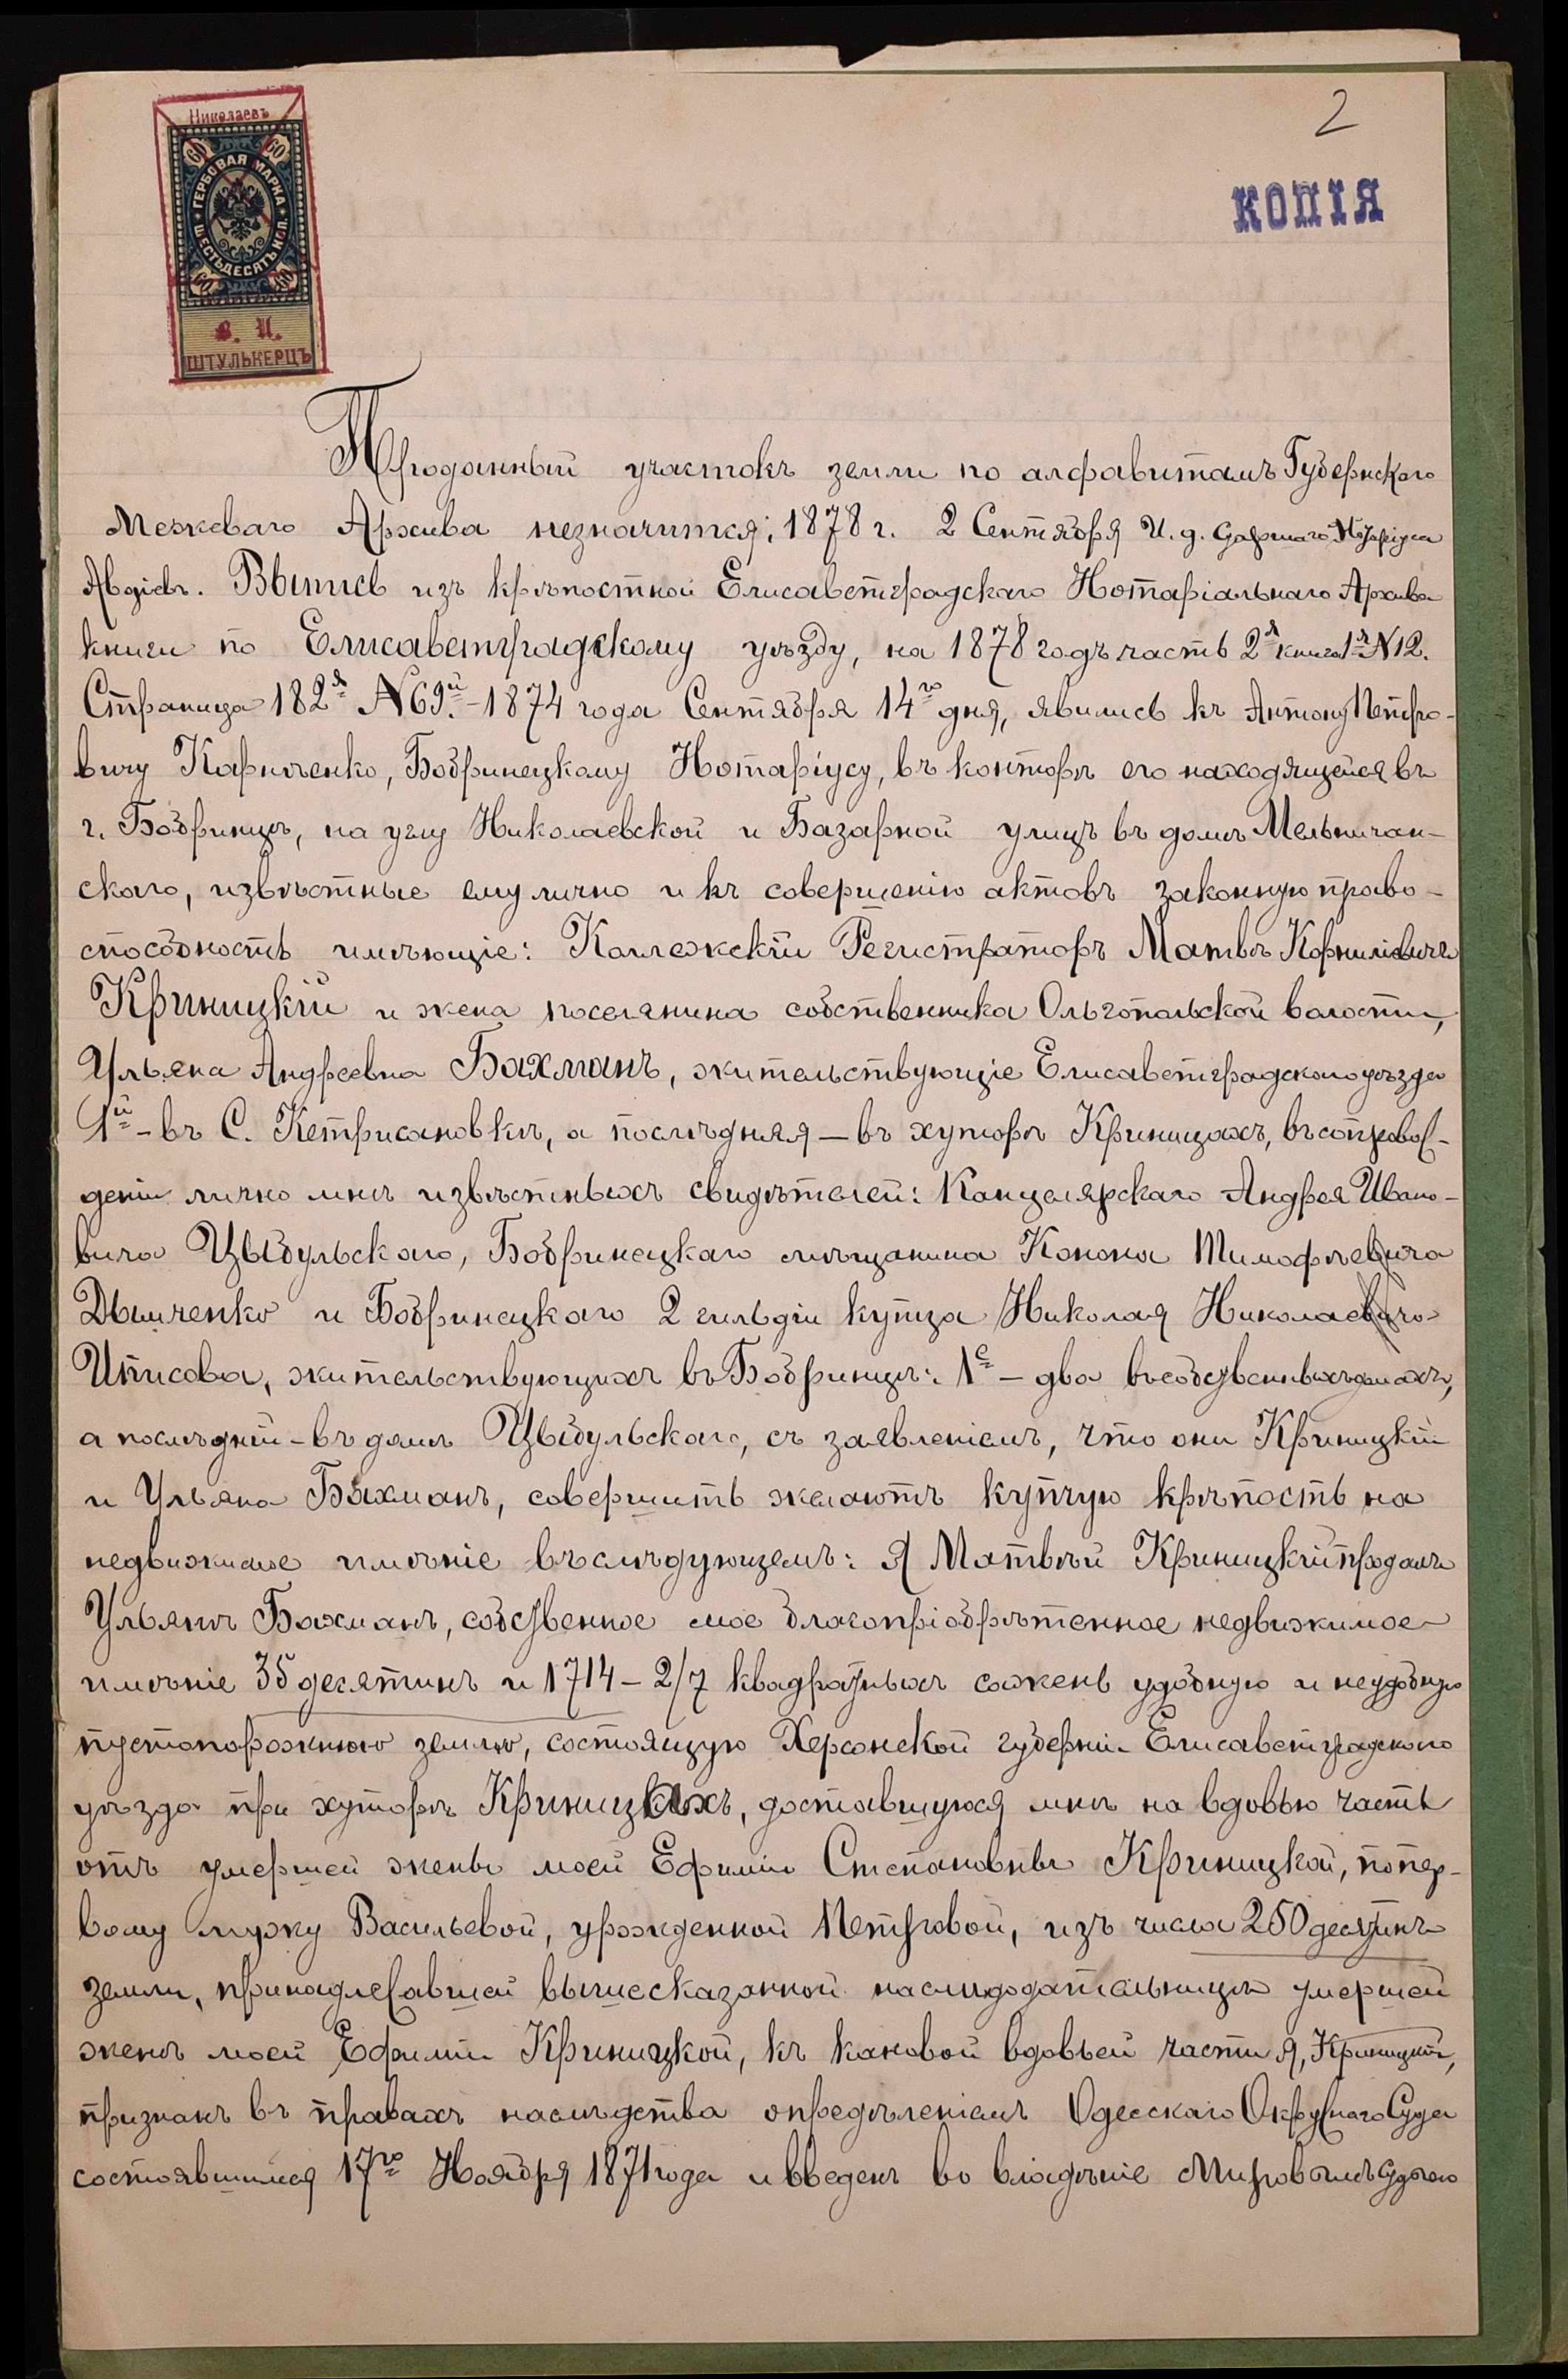 2
КОПІЯ
Николаевъ
60 60
ГЕРБОВАЯ МАРКА
ШЕСТЬДЕСЯТЪ КОП.
60 60
В. И.
ШТУЛЬКЕРЦЪ
Проданный участокъ земли по алфавитамъ Губернскаго
Межеваго Архива незначится; 1878 г. 2 Сентября И. д. Старшаго Нотаріуса
Авдіевъ. Выпись изъ крѣпостной Елисаветградскаго Нотаріальнаго Архива
книги по Елисаветградскому уѣзду, на 1878 годъ часть 2я книга 1я №12.
Страница 182я №69й - 1874 года Сентября 14го дня, явились къ Антону Петро-
вичу Карпиченко, Бобринецкому Нотаріусу, въ конторѣ его находящейся въ
г. Бобринцѣ, на углу Николаевской и Базарной улицъ въ домѣ Мельничан-
скаго, извѣстные ему лично и къ совершенію актовъ законную право-
способность имѣющіе: Коллежскій Регистраторъ Матвѣ Корниліевичъ
Криницкій и жена поселянина собственника Ольгопольской волости,
Ульяна Андреевна Бахманъ, жительствующіе Елисаветградскаго уѣзда
1й - въ С. Кетрисановкѣ, а послѣдняя — въ хуторѣ Криницахъ, въ сопровож-
деніи лично мнѣ извѣстныхъ свидѣтелей: Канцелярскаго Андрея Ивано-
вича Цыбульскаго, Бобринецкаго мѣщанина Конона Тимофѣевича
Дымченко и Бобринецкаго 2 гильдіи купца Николая Николаевича
Иписова, жительствующихъ въ Бобринцѣ: 1е - два въ собственныхъ домахъ,
а послѣдній - въ домѣ Цыбульскаго, съ заявленіемъ, что они Криницкій
и Ульяна Бахманъ, совершить желаютъ купчую крѣпость на
недвижимое имѣніе въ слѣдующемъ: Я Матвѣй Криницкій продалъ
Ульянѣ Бахманъ, собственное мое благопріобрѣтенное недвижимое
имѣніе 35 десятинъ и 1714 - 2/7 квадратныхъ сажень удобную и неудобную
пустопорожнюю землю, состоящую Херсонской губерніи Елисаветградскаго
уѣзда при хуторѣ Криницахъ, доставшуюся мнѣ на вдовью часть
отъ умершей жены моей Ефиміи Степановны Криницкой, по пер-
вому мужу Васильевой, урожденной Петровой, изъ числа 250 десятинъ
земли, принадлежавшей вышесказанной наслидодательницѣ умершей
женѣ моей Ефиміи Криницкой, къ каковой вдовьей части я, Криницкій,
признанъ въ правахъ наслѣдства опредѣленіемъ Одесскаго Окружнаго Суда
состоявшимся 17го Ноября 1871 года и введенъ во владѣніе Мировымъ Судьею